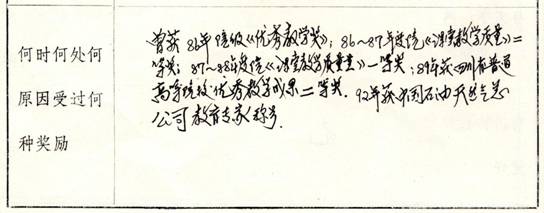 何时何处何
原因受过何
种奖励
曾获86年院级《优秀教学奖》；86～87年度院《课堂教学质量》二
等奖；87～88年度院《课堂教学质量奖》一等奖；89年获四川省普通
高等院校优秀教学成果二等奖．92年获中国石油天然气总
公司教育专家称号．